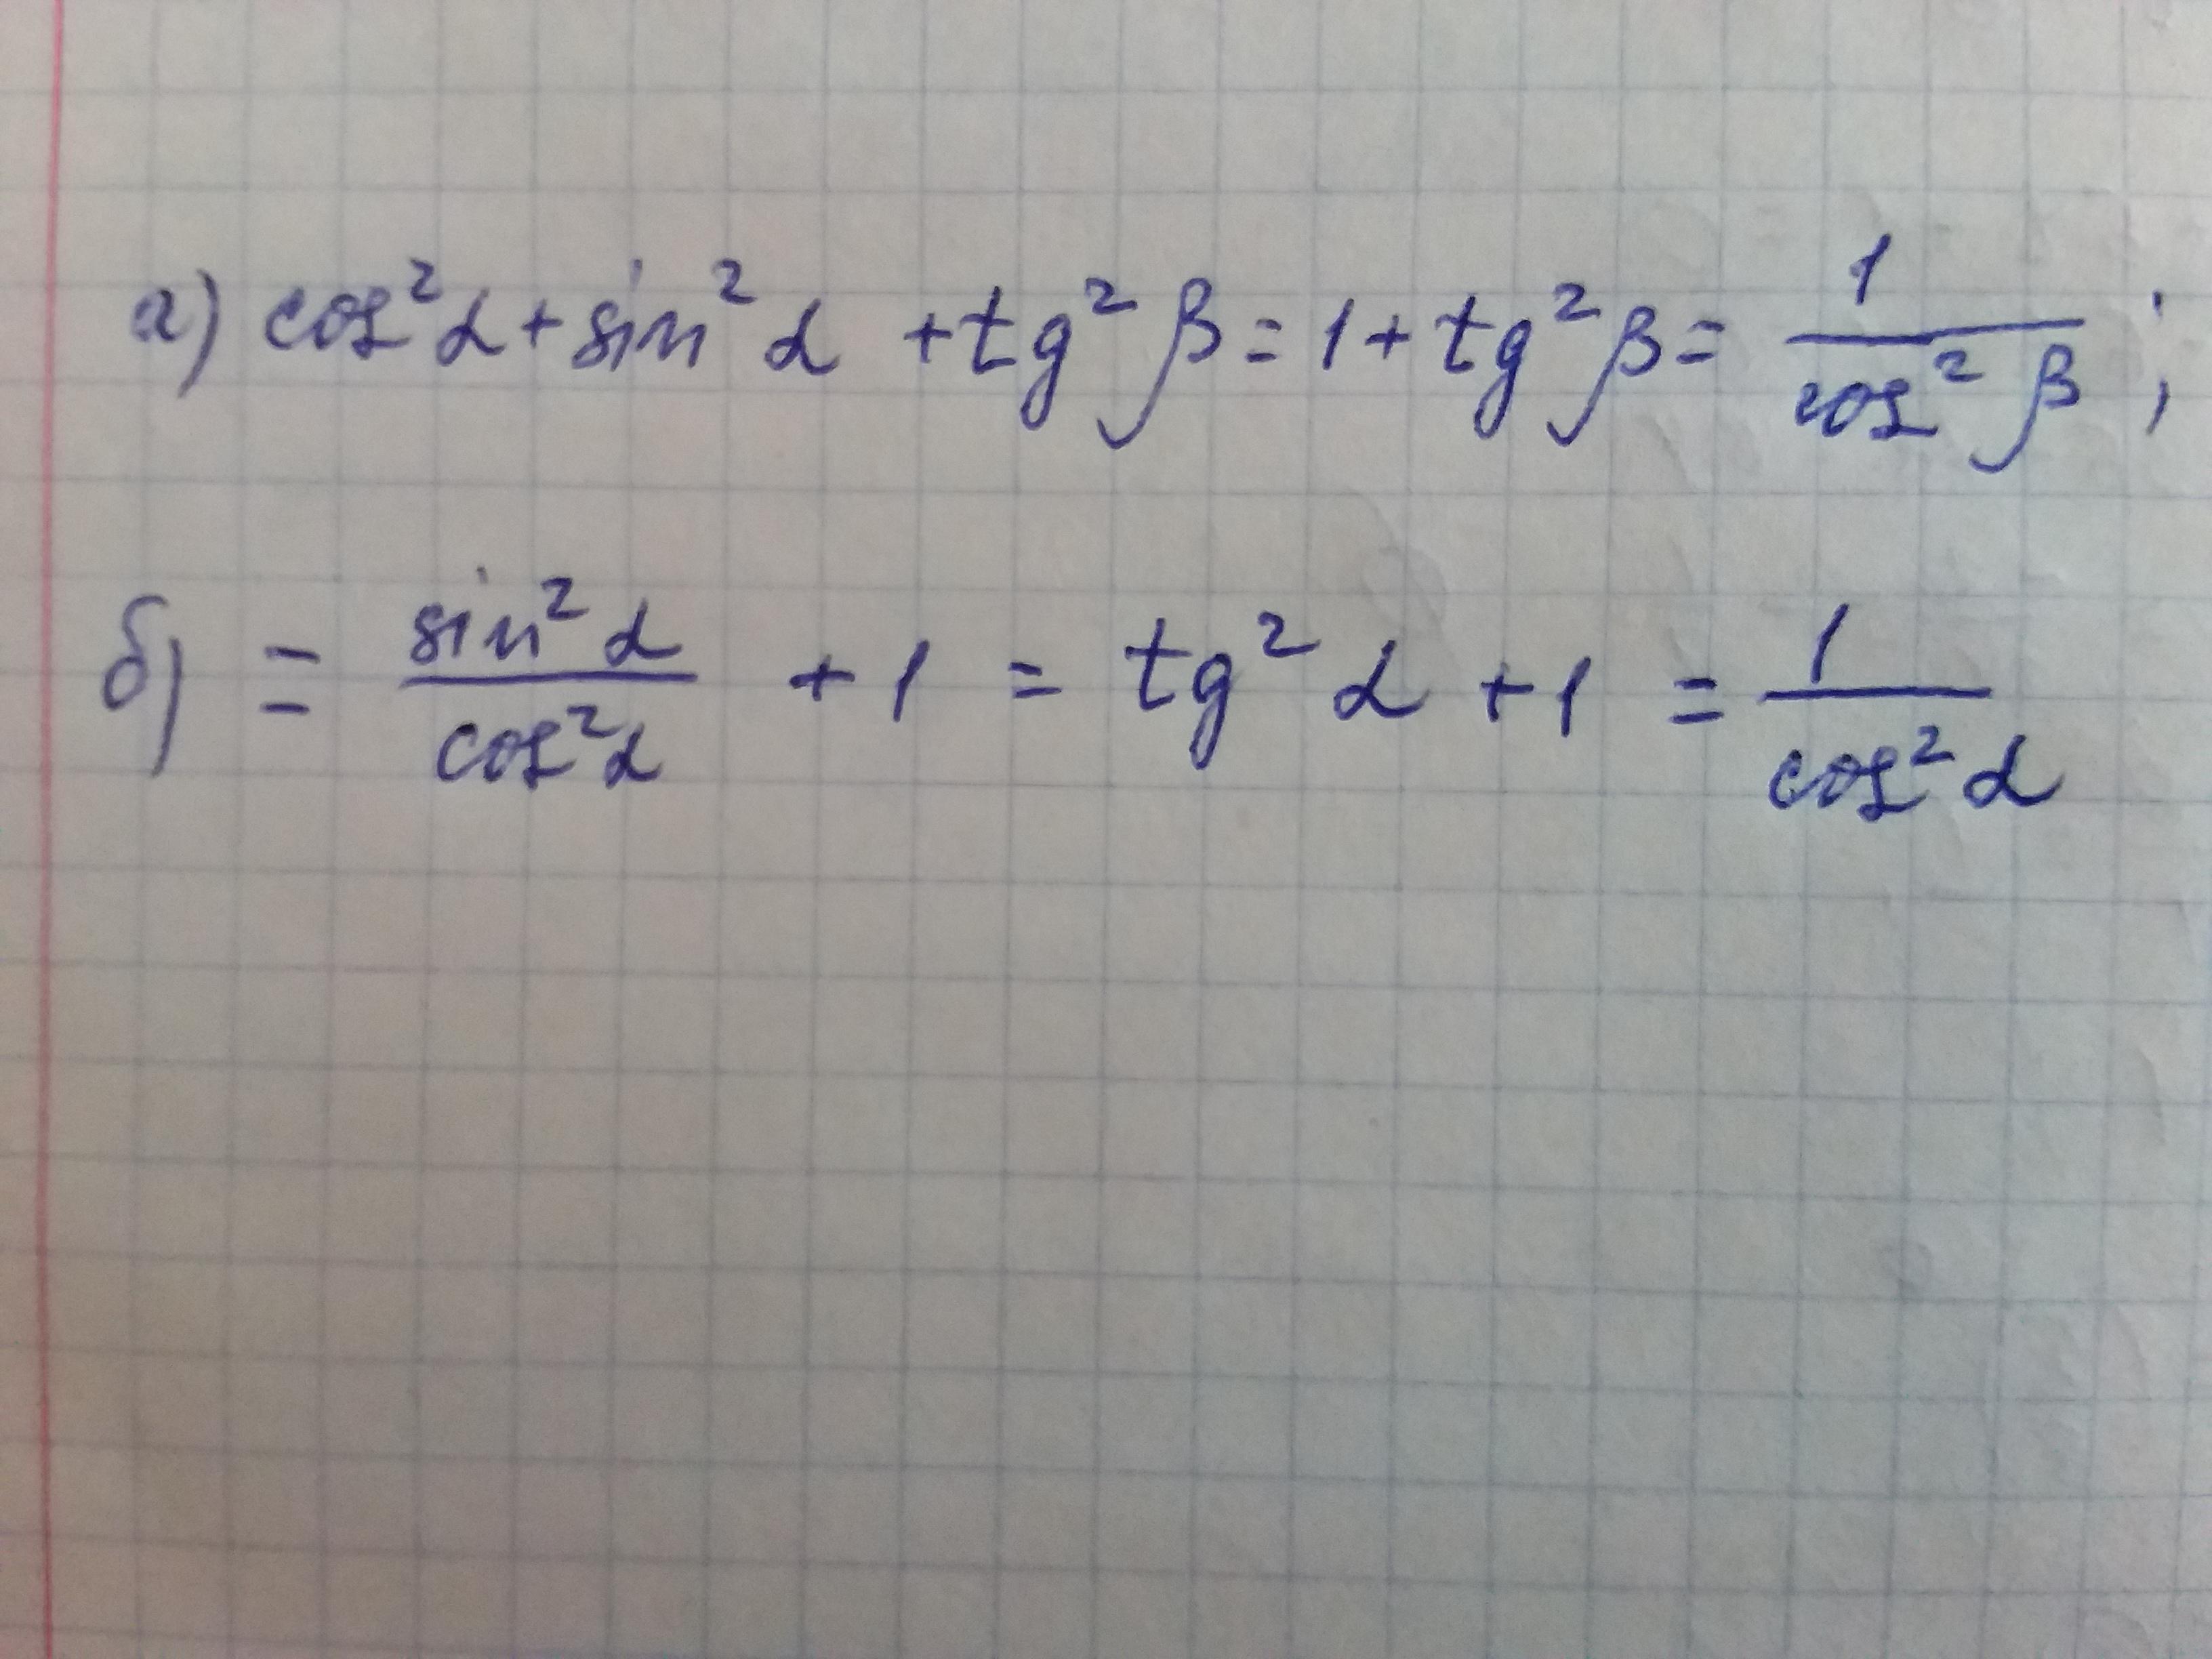 а) cos²α + sin²α + tg²β = 1 + tg²β = 1/cos²β ;
б) = sin²α/cos²α + 1 = tg²α + 1 = 1/cos²α